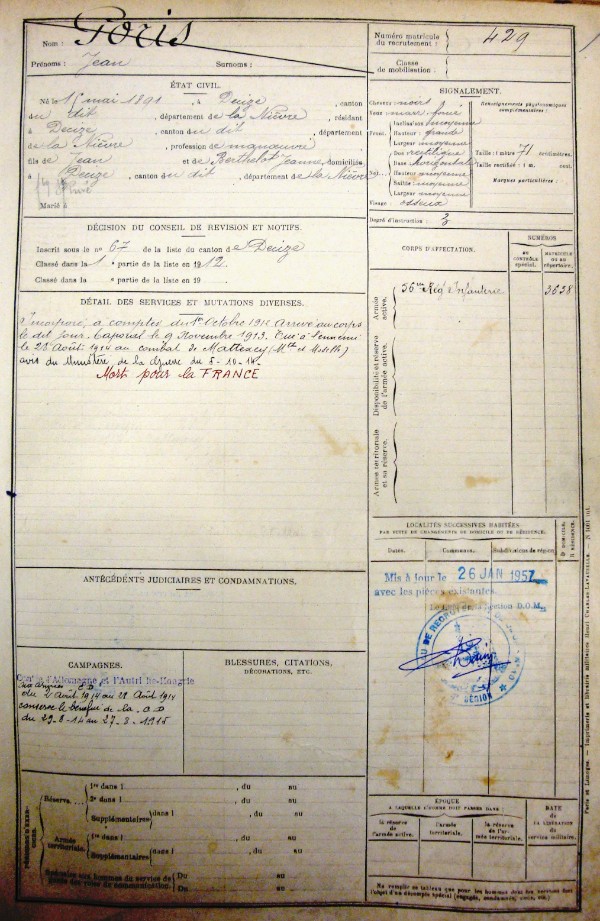 Nom : Goris
Prénoms : Jean Surnoms :
Numéro matricule du recrutement : 429
Classe de mobilisation :
ÉTAT CIVIL.
Né le 15 mai 1891, à Decize, canton
du dit, département de la Nièvre, résidant
à Decize, canton du dit, département
de la Nièvre, profession de manœuvre
fils de Jean et de Berthelot Jeanne, domiciliés
à Decize, canton du dit, département de la Nièvre
Marié à
SIGNALEMENT.
Cheveux noirs
Yeux
Front. Inclinaison moyenne
Hauteur grande
Largeur moyenne
Nez. Dos rectiligne
Base horizontale
Hauteur moyenne
Saillie moyenne
Largeur moyenne
Visage : osseux
Renseignements physionomiques complémentaires :
Taille : 1 mètre 71 centimètres.
Taille rectifiée : 1 m. cent.
Marques particulières :
Degré d'instruction : 3
DÉCISION DU CONSEIL DE RÉVISION ET MOTIFS.
Inscrit sous le n° 67 de la liste du canton de Decize
Classé dans la 1e partie de la liste en 1912.
Classé dans la partie de la liste en 19
CORPS D'AFFECTATION.
NUMÉROS
AU CONTRÔLE spécial.
MATRICULE OU AU répertoire.
Armée active.
Régt d'Infanterie
3638
Disponibilité et réserve de l'armée active.
Armée territoriale et sa réserve.
DÉTAIL DES SERVICES ET MUTATIONS DIVERSES.
Incorporé à compter du 1er Octobre 1912. Arrivé au corps
le dit jour. Caporal le 9 Novembre 1913. Tué à l'ennemi
le 28 Août 1914 au combat de Mattexey (Mthe et Moselle)
avis du Ministère de la Guerre du 5-10-14
Mort pour la FRANCE
LOCALITÉS SUCCESSIVES HABITÉES
PAR SUITE DE CHANGEMENTS DE DOMICILE OU DE RÉSIDENCE.
Dates. Communes. Subdivisions de région.
D domicile. R résidence.
Mis à jour le 26 JAN 1957
avec les pièces existantes.
Le Chef de la Section D.O.M.
ANTÉCÉDENTS JUDICIAIRES ET CONDAMNATIONS.
CAMPAGNES.
Contre l'Allemagne et l'Autriche-Hongrie
du 2 Août 1914 au 28 Août 1914
conserve le bénéfice de la
du 29-8-14 au 27-8-1915
BLESSURES, CITATIONS, DÉCORATIONS, ETC.
PÉRIODES D'EXERCICES.
Réserve. 1re dans l , du au
2e dans l , du au
Supplémentaires dans l , du au
Armée territoriale. 1re dans l , du au
Supplémentaires dans l , du au
Du au
Du au
ÉPOQUE
À LAQUELLE L'HOMME DOIT PASSER DANS :
la réserve de l'armée active.
l'armée territoriale.
la réserve de l'armée territoriale.
DATE DE LA LIBÉRATION du service militaire.